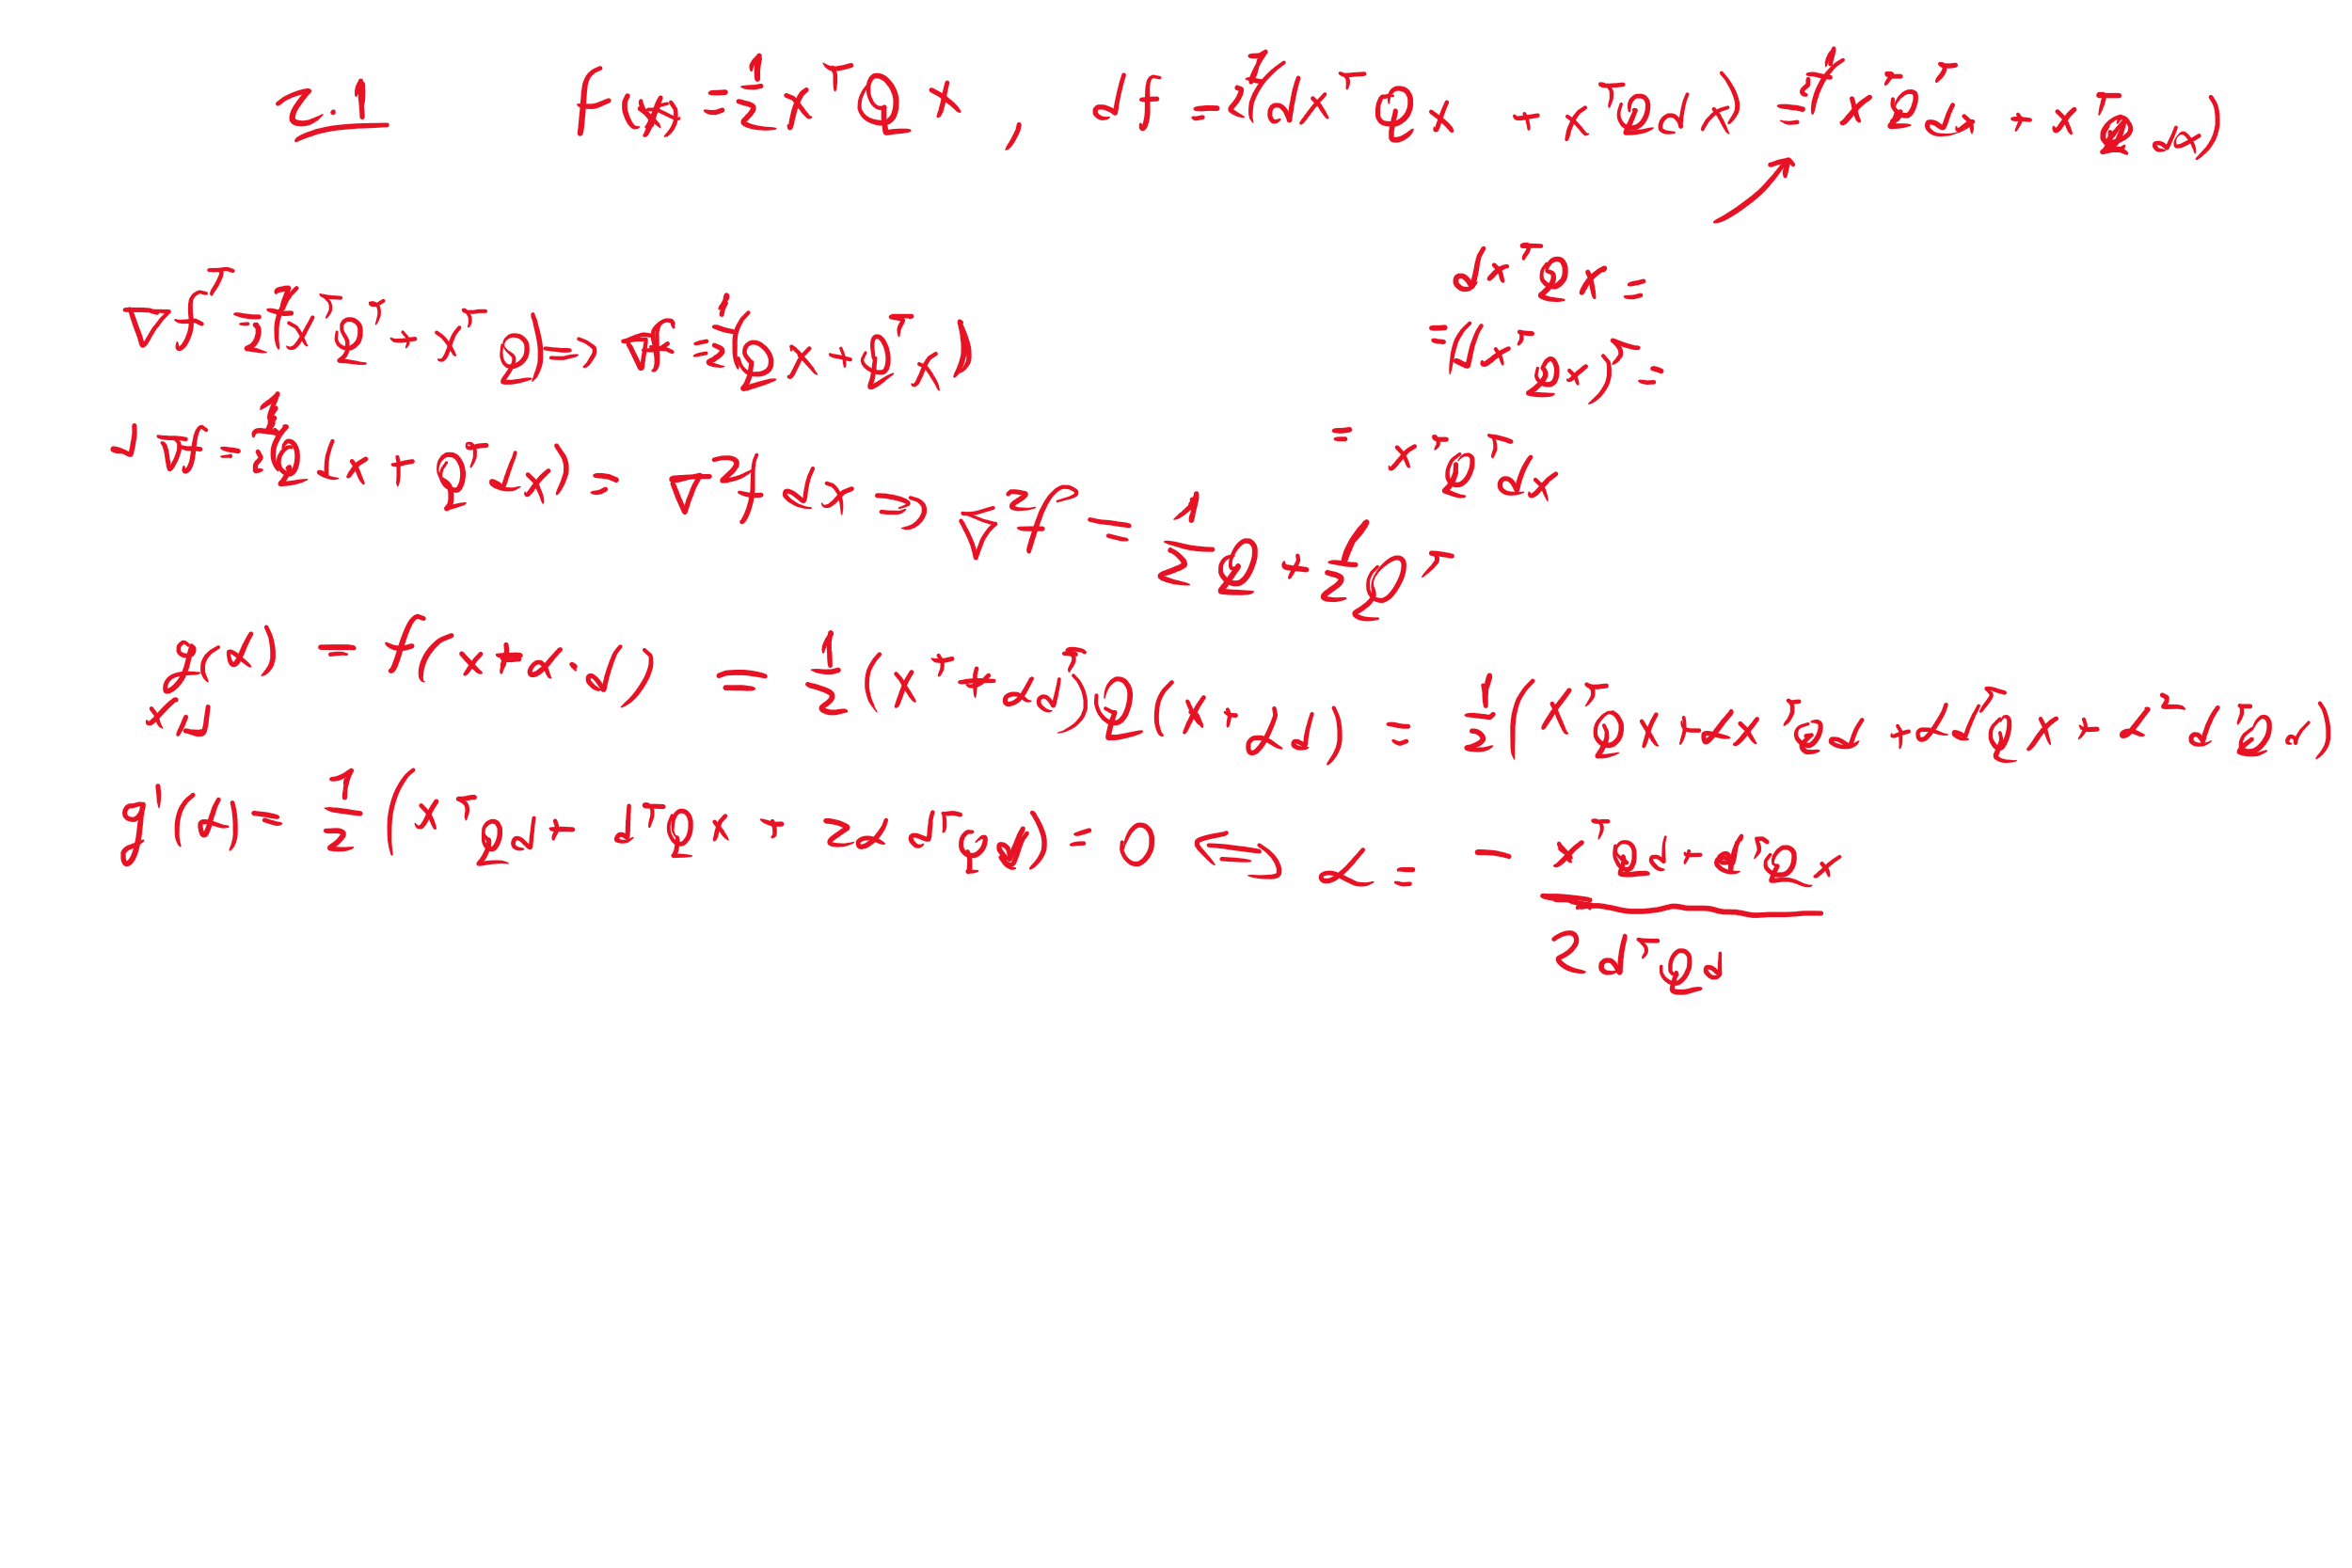 2.1 f(x) = 1/2 xᵀQx , df = 1/2(dxᵀQx + xᵀQdx) = 1/2(xᵀQᵀdx + xᵀQdx)
dxᵀQx =
= (dxᵀQx)ᵀ =
= xᵀQᵀdx
∇fᵀ = 1/2(xᵀQᵀ + xᵀQ) => ∇f = 1/2(Qx + Qᵀx)
d∇f = 1/2(Qdx + Qᵀdx) = ∇²f dx => ∇²f = 1/2 Q + 1/2 Qᵀ
g(α) = f(x + α·d) = 1/2(xᵀ + αdᵀ)Q(x + αd) = 1/2(xᵀQx + αxᵀQd + αdᵀQx + α²dᵀQd)
x,d
g'(α) = 1/2(xᵀQd + dᵀQx + 2αdᵀQd) = 0 <=> α = - (xᵀQd + dᵀQx) / 2dᵀQd